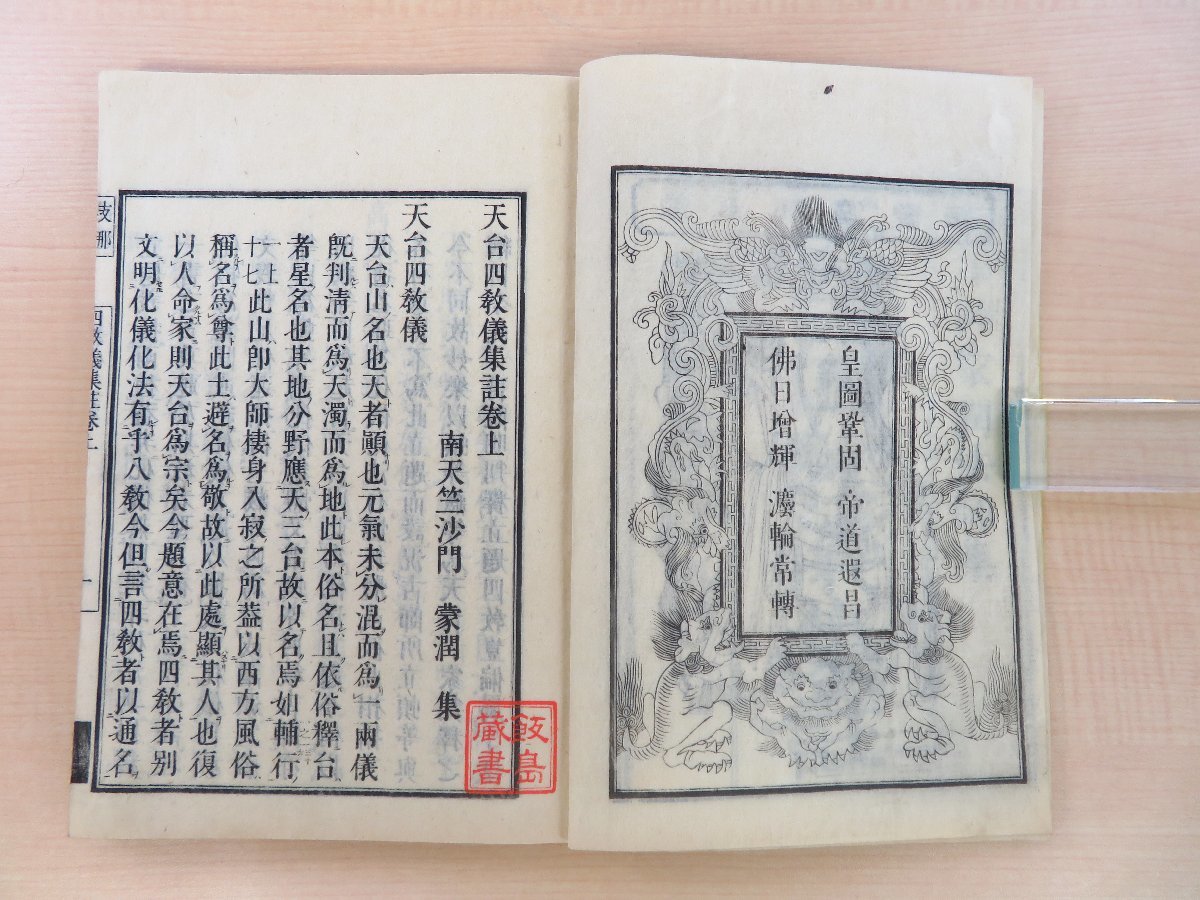 皇圖鞏固 帝道遐昌
佛日增輝 灋輪常轉
天台四敎儀集註卷上
南天竺沙門 蒙潤 集
天台四敎儀
天台山名也天者顚也元氣未分混而爲一兩儀
旣判淸而爲天濁而爲地此本俗名且依俗釋台
者星名也其地分野應天三台故以名焉如輔行
一上十七此山卽大師棲身入寂之所葢以西方風俗
稱名爲尊此土避名爲敬故以此處顯其人也復
以人命家則天台爲宗矣今題意在焉四敎者別
文明化儀化法有乎八敎今但言四敎者以通名
支那
四敎儀集註卷上
一
飯島
藏書